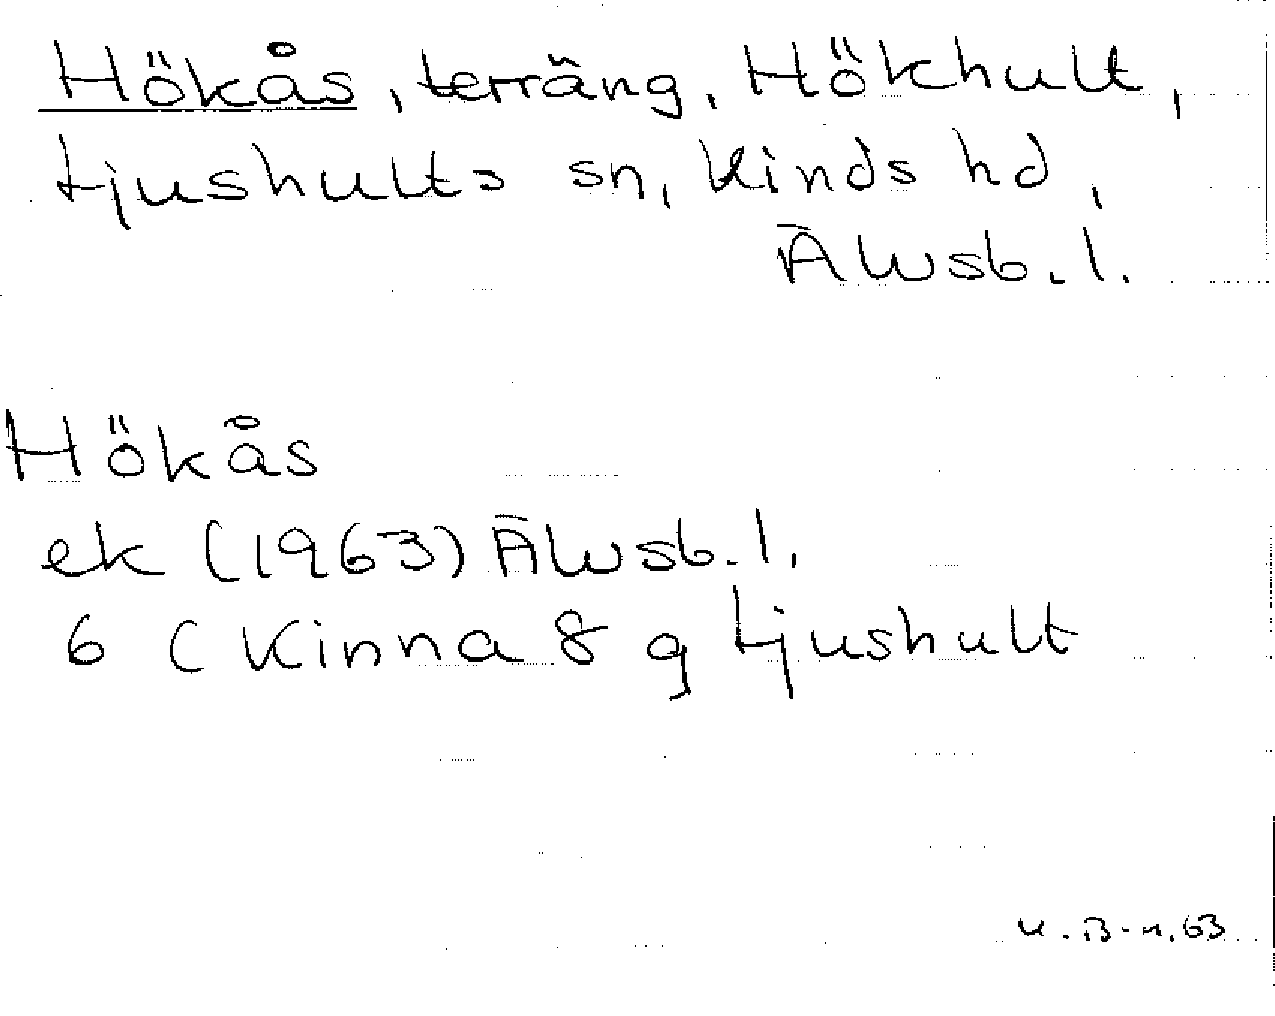 Hökås, terräng, Hökhult,
Ljushults sn, Kinds hd,
Älvsb. l.
Hökås
ek (1963) Älvsb. l.
6 C Kinna 8 g Ljushult
K. B-n. 63